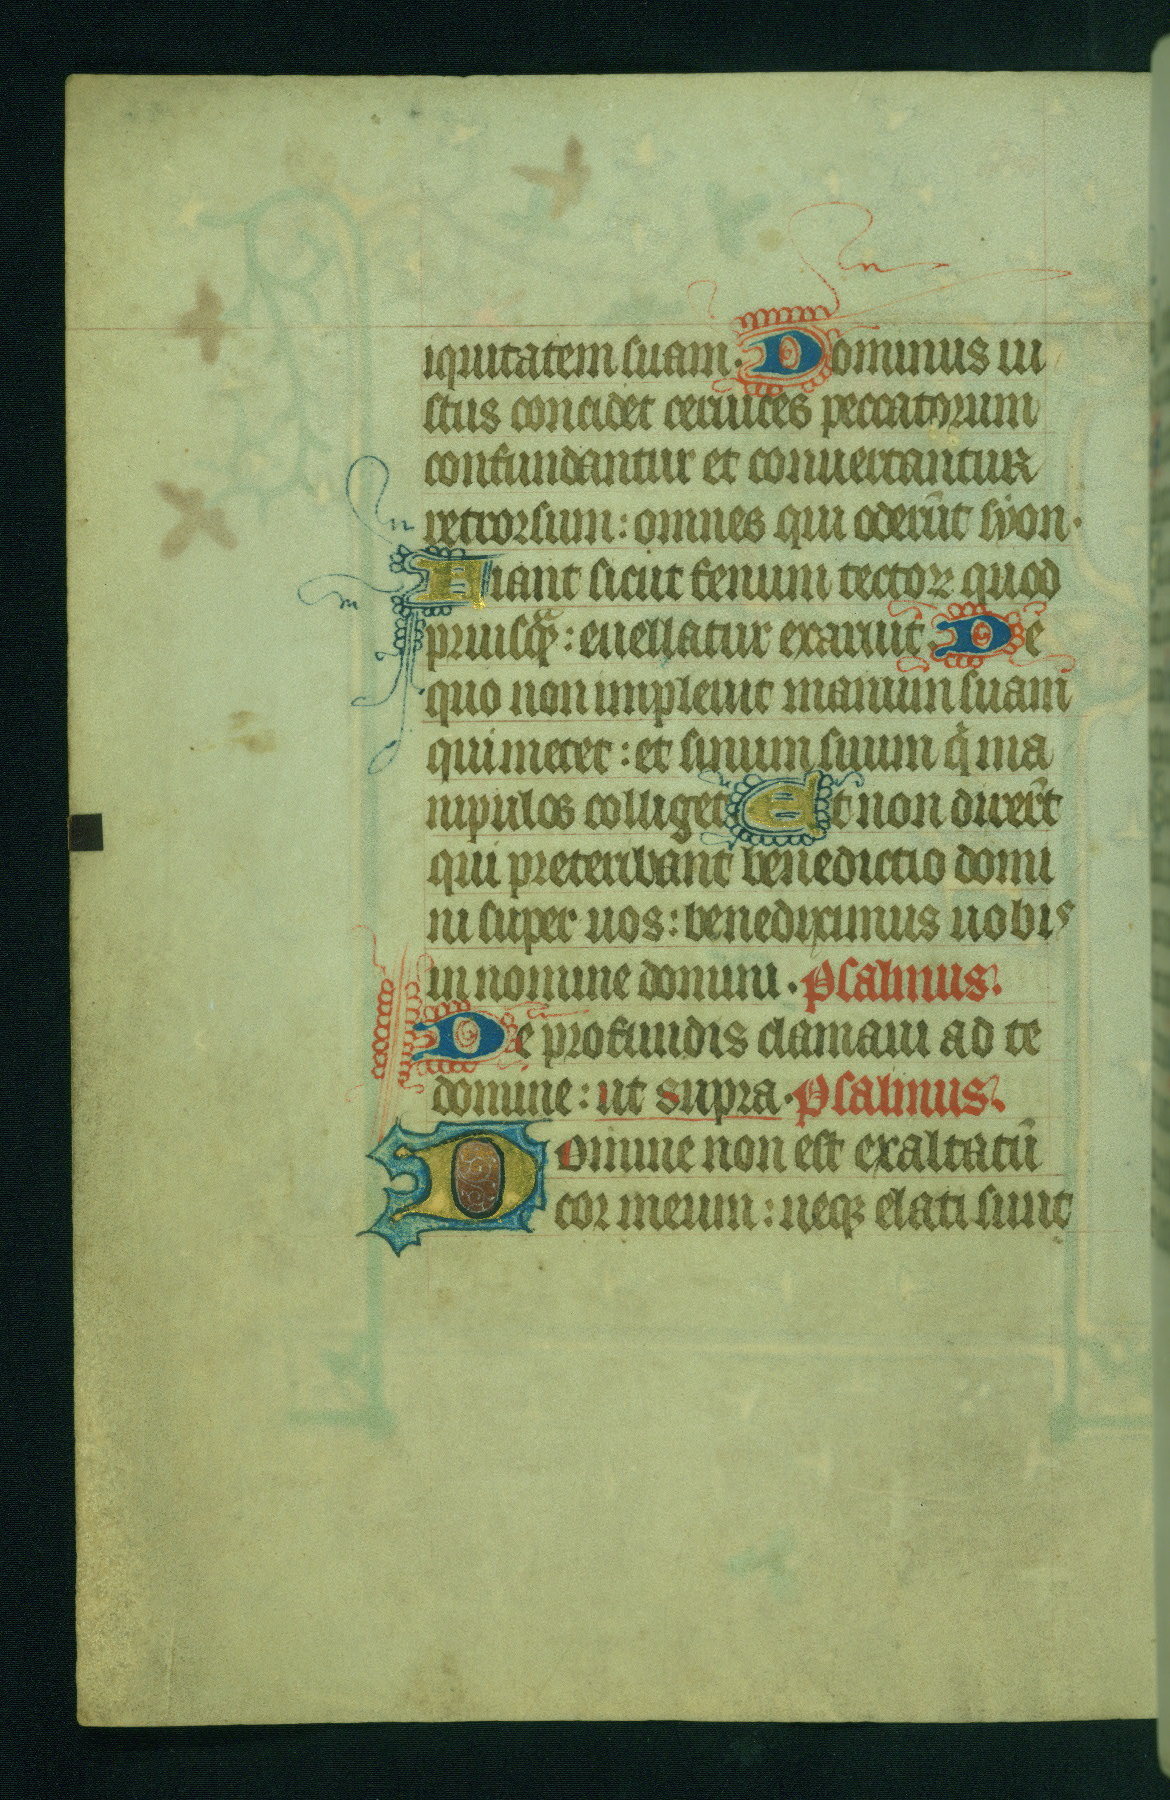 iquitatem suam. Dominus iu
stus concidet ceruices peccatorum
confundantur et conuertantur
retrorsum: omnes qui oderūt syon.
Fiant sicut fenum tectoꝝ quod
priusqᷓ: euellatur exaruit. De
quo non impleuit manum suam
qui metet: et sinum suum q̇ ma
nipulos colliget Et non dixerūt
qui preteribant benedictio domi
ni super uos: benediximus uobis
in nomine domini. Psalmus.
De profundis clamaui ad te
domine: ut supra. Psalmus.
Domine non est exaltatū
cor meum: neqꝫ elati sunt